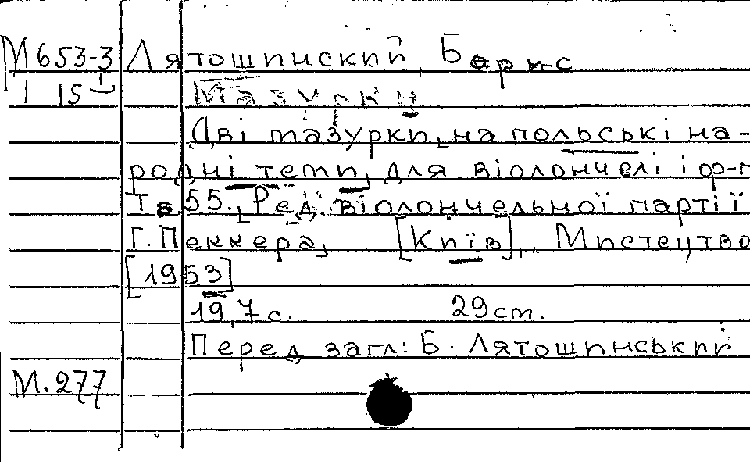 М653-3 Лятошинский, Борис
1 15 Мазурки
Дві мазурки, на польські на-
родні теми, для віолончелі і ф-п
Тв 55. Ред. віолончельної партії
Г. Пеккера, [Київ], Мистецтво
[1953]
19,7 с. 29 cm.
Перед загл: Б. Лятошинський
М.277